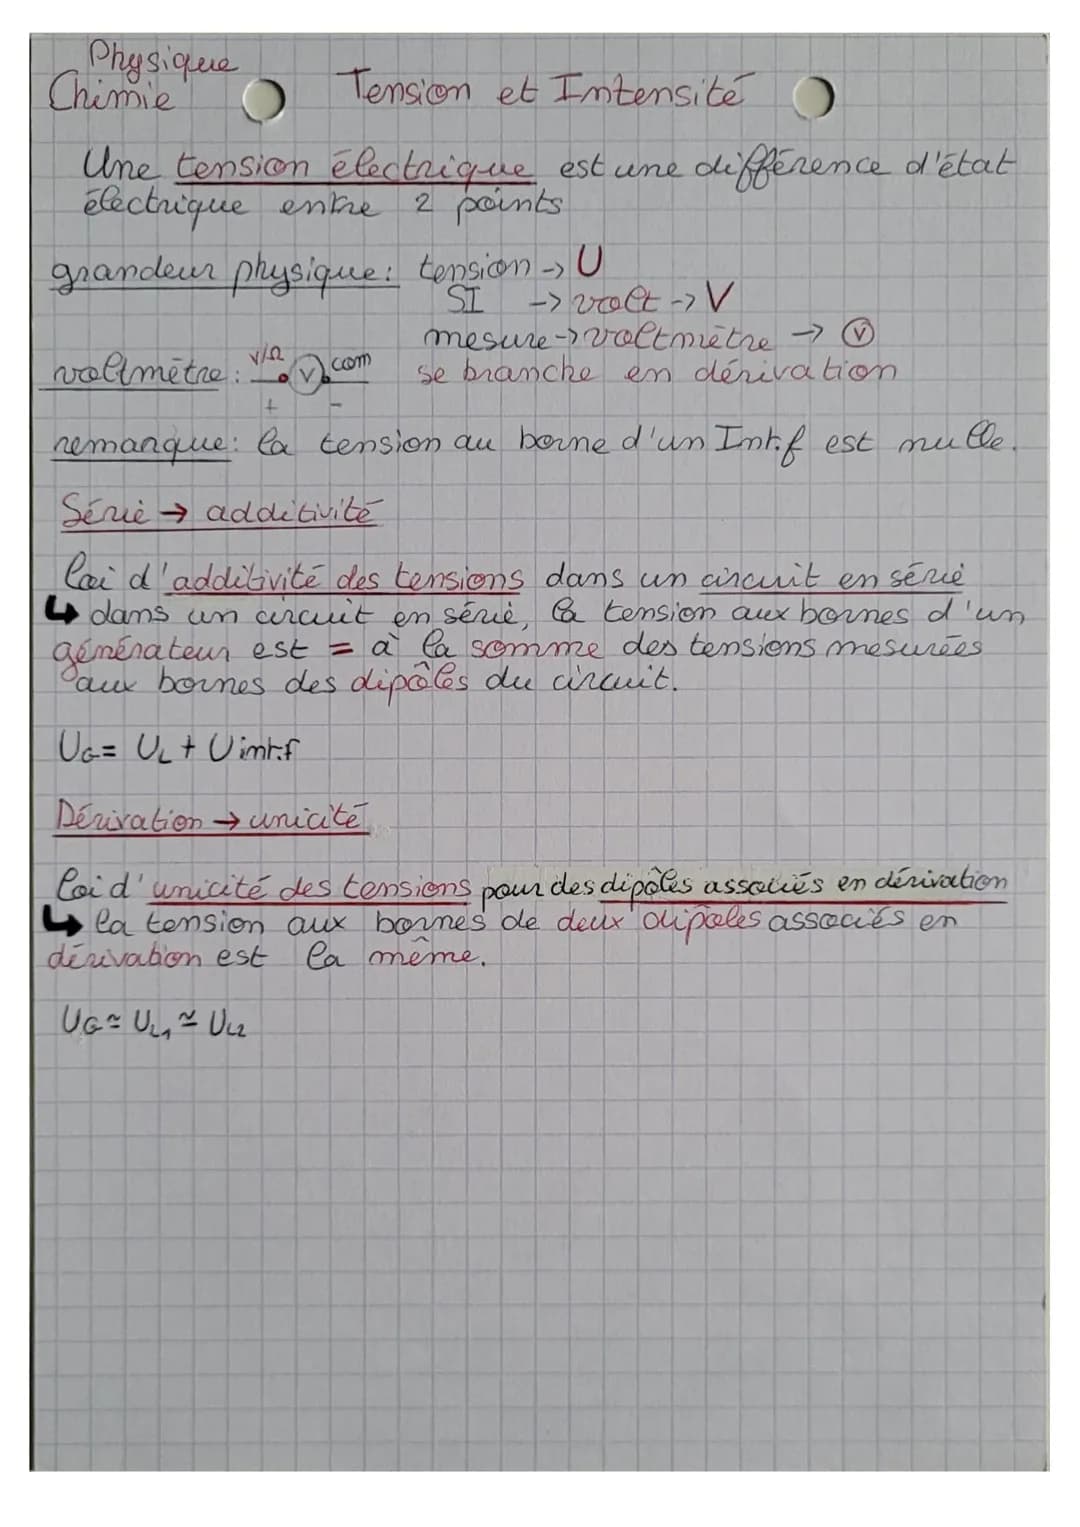 Physique
Chimie
Tension et Intensité
Une tension électrique est une différence d'état
électrique entre 2 points
grandeur physique: tension -> U
SI -> volt -> V
mesure -> voltmètre -> V
voltmètre: V/Ω V com
+ -
se branche en dérivation
remarque: la tension au borne d'un Int.f est nulle.
Série → additivité
loi d'additivité des tensions dans un circuit en série
↳ dans un circuit en série, la tension aux bornes d'un
générateur est = à la somme des tensions mesurées
aux bornes des dipôles du circuit.
UG = UL + Uint.f
Dérivation → unicité
loi d'unicité des tensions pour des dipôles associés en dérivation
↳ la tension aux bornes de deux dipôles associés en
dérivation est la même.
UG ≃ UL1 ≃ UL2